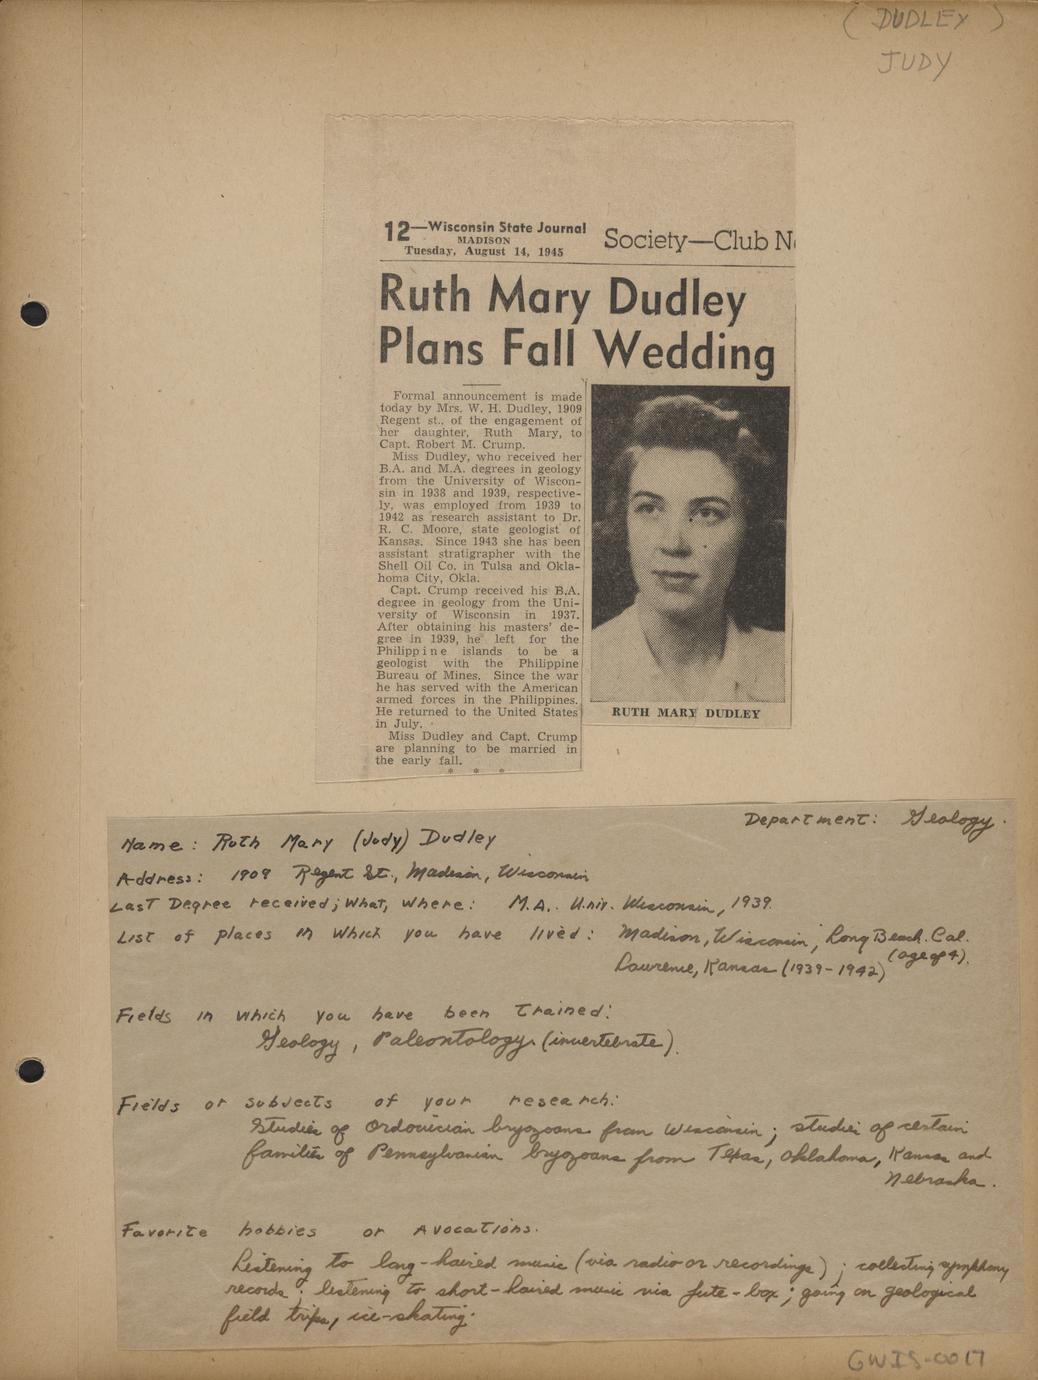 ( DUDLEY )
JUDY
12—Wisconsin State Journal
MADISON
Tuesday, August 14, 1945
Society—Club N
Ruth Mary Dudley
Plans Fall Wedding
Formal announcement is made
today by Mrs. W. H. Dudley, 1909
Regent st., of the engagement of
her daughter, Ruth Mary, to
Capt. Robert M. Crump.
Miss Dudley, who received her
B.A. and M.A. degrees in geology
from the University of Wiscon-
sin in 1938 and 1939, respective-
ly, was employed from 1939 to
1942 as research assistant to Dr.
R. C. Moore, state geologist of
Kansas. Since 1943 she has been
assistant stratigrapher with the
Shell Oil Co. in Tulsa and Okla-
homa City, Okla.
Capt. Crump received his B.A.
degree in geology from the Uni-
versity of Wisconsin in 1937.
After obtaining his masters' de-
gree in 1939, he left for the
Philippine islands to be a
geologist with the Philippine
Bureau of Mines. Since the war
he has served with the American
armed forces in the Philippines.
He returned to the United States
in July.
Miss Dudley and Capt. Crump
are planning to be married in
the early fall.
* * *
RUTH MARY DUDLEY
Department: Geology.
Name: Ruth Mary (Judy) Dudley
Address: 1909 Regent St., Madison, Wisconsin
Last Degree received; What, where: M.A. Univ. Wisconsin, 1939.
List of places in which you have lived: Madison, Wisconsin; Long Beach. Cal.
(age of 4).
Lawrence, Kansas (1939-1942)
Fields in which you have been trained:
Geology, Paleontology (invertebrate).
Fields or subjects of your research:
Studies of Ordovician bryozoans from Wisconsin; studies of certain
families of Pennsylvanian bryozoans from Texas, Oklahoma, Kansas and
Nebraska.
Favorite hobbies or avocations.
Listening to long-haired music (via radio or recordings); collecting symphony
records; listening to short-haired music via jute-box; going on geological
field trips, ice-skating.
GWIS-0017